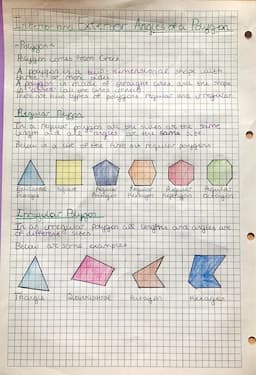 Interior and Exterior Angles of a Polygon
Polygons
Polygon comes from Greek.
A polygon is a two dimensional shape with
three or more sides.
A polygon is made of straight lines and the shape
is closed (all the lines
There are two types of polygons, regular and irregular.
Regular Polygon
In a regular polygon all the sides are the same
length and all angles are the same size.
Below is a list of the first six regular polygons
Equilateral Triangle
Square
Regular Pentagon
Regular Hexagon
Regular Heptagon
Regular Octagon
Irregular Polygon
In an irregular polygon all lengths and angles are
of different sizes
Below are some examples
Triangle
Quadrilateral
Pentagon
Hexagon